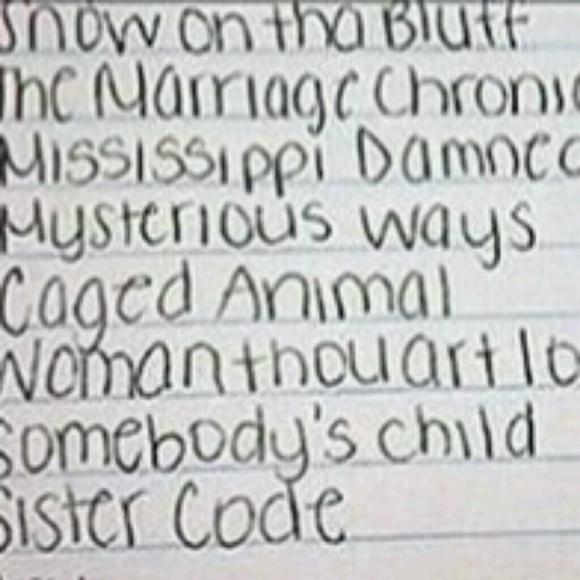 Snow on tha Bluff
The Marriage Chroni
Mississippi Damned
Mysterious ways
Caged Animal
Woman thou art lo
Somebody's child
Sister Code